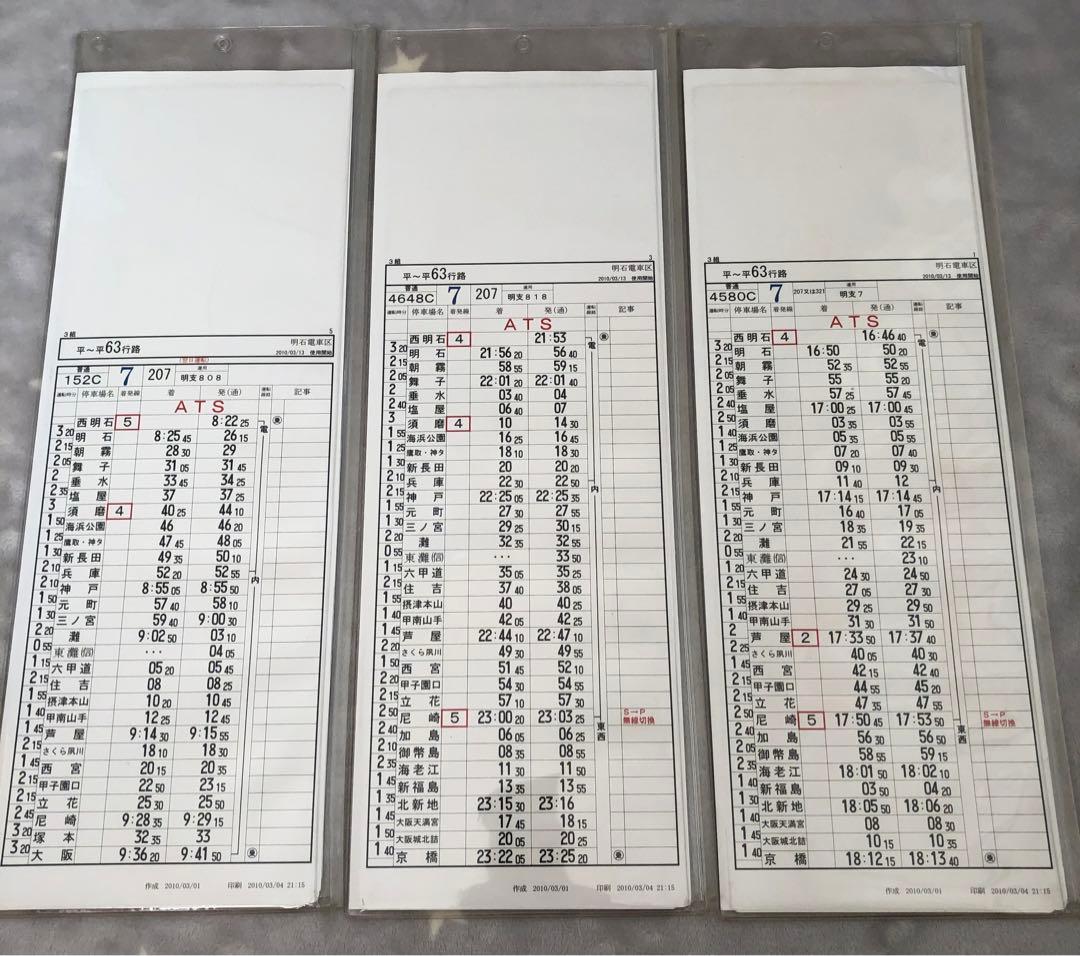 3組 5
平～平63行路 明石電車区
2010/03/13 使用開始
(翌日運転)
普通 運用
152C 7 207 明支808
運転時分 停車場名 着発線 着 発(通) 運転線路 記事
ATS
西明石 5 8:22 25 電
3 20 明石 8:25 45 26 15
2 15 朝霧 28 30 29
2 05 舞子 31 05 31 45
2 垂水 33 45 34 25
2 35 塩屋 37 37 25
3 須磨 4 40 25 44 10
1 50 海浜公園 46 46 20
1 25 鷹取・神タ 47 45 48 05
1 30 新長田 49 35 50 10
2 10 兵庫 52 20 52 55 内
2 10 神戸 8:55 05 8:55 50
1 50 元町 57 40 58 10
1 30 三ノ宮 59 40 9:00 30
2 20 灘 9:02 50 03 10
0 55 東灘(信) ･･･ 04 05
1 15 六甲道 05 20 05 45
2 15 住吉 08 08 25
1 55 摂津本山 10 20 10 45
1 40 甲南山手 12 25 12 45
1 45 芦屋 9:14 30 9:15 55
2 15 さくら夙川 18 10 18 30
1 45 西宮 20 15 20 35
2 15 甲子園口 22 50 23 15
2 15 立花 25 30 25 50
2 45 尼崎 9:28 35 9:29 15
3 20 塚本 32 35 33
3 20 大阪 9:36 20 9:41 50
作成 2010/03/01 印刷 2010/03/04 21:15
3組 3
平～平63行路 明石電車区
2010/03/13 使用開始
普通 運用
4648C 7 207 明支818
運転時分 停車場名 着発線 着 発(通) 運転線路 記事
ATS
西明石 4 21:53 電
3 20 明石 21:56 20 56 40
2 15 朝霧 58 55 59 15
2 05 舞子 22:01 20 22:01 40
2 垂水 03 40 04
2 40 塩屋 06 40 07
3 須磨 4 10 14 30
1 55 海浜公園 16 25 16 45
1 25 鷹取・神タ 18 10 18 30
1 30 新長田 20 20 20
2 10 兵庫 22 30 22 50 内
2 15 神戸 22:25 05 22:25 35
1 55 元町 27 30 27 55
1 30 三ノ宮 29 25 30 15
2 20 灘 32 35 32 55
0 55 東灘(信) ･･･ 33 50
1 15 六甲道 35 05 35 25
2 15 住吉 37 40 38 05
1 55 摂津本山 40 40 25
1 40 甲南山手 42 05 42 25
1 45 芦屋 22:44 10 22:47 10
2 20 さくら夙川 49 30 49 55
1 50 西宮 51 45 52 10
2 20 甲子園口 54 30 54 55
2 15 立花 57 10 57 30
2 50 尼崎 5 23:00 20 23:03 25 東西 S→P 無線切換
2 40 加島 06 05 06 25
2 10 御幣島 08 35 08 55
2 35 海老江 11 30 11 50
1 45 新福島 13 35 13 55
1 35 北新地 23:15 30 23:16
1 45 大阪天満宮 17 45 18 15
1 50 大阪城北詰 20 05 20 25
1 40 京橋 23:22 05 23:25 20
作成 2010/03/01 印刷 2010/03/04 21:15
3組 1
平～平63行路 明石電車区
2010/03/13 使用開始
普通 運用
4580C 7 207又は321 明支7
運転時分 停車場名 着発線 着 発(通) 運転線路 記事
ATS
西明石 4 16:46 40 電
3 20 明石 16:50 50 20
2 15 朝霧 52 35 52 55
2 05 舞子 55 55 20
2 05 垂水 57 25 57 45
2 40 塩屋 17:00 25 17:00 45
須磨 03 35 03 55
海浜公園 05 35 05 55
鷹取・神タ 07 20 07 40
1 30 新長田 09 10 09 30
2 10 兵庫 11 40 12 内
2 15 神戸 17:14 15 17:14 45
1 55 元町 16 40 17 05
1 30 三ノ宮 18 35 19 35
2 20 灘 21 55 22 15
0 55 東灘(信) ･･･ 23 10
1 20 六甲道 24 30 24 50
2 15 住吉 27 05 27 30
1 55 摂津本山 29 25 29 50
1 40 甲南山手 31 30 31 50
2 芦屋 2 17:33 50 17:37 40
さくら夙川 40 05 40 30
1 45 西宮 42 15 42 40
2 15 甲子園口 44 55 45 20
2 15 立花 47 35 47 55
2 50 尼崎 5 17:50 45 17:53 50 東西 S→P 無線切換
2 40 加島 56 30 56 50
2 05 御幣島 58 55 59 15
2 35 海老江 18:01 50 18:02 10
1 40 新福島 03 50 04 20
1 30 北新地 18:05 50 18:06 20
1 40 大阪天満宮 08 08 30
1 45 大阪城北詰 10 15 10 35
1 40 京橋 18:12 15 18:13 40
作成 2010/03/01 印刷 2010/03/04 21:15